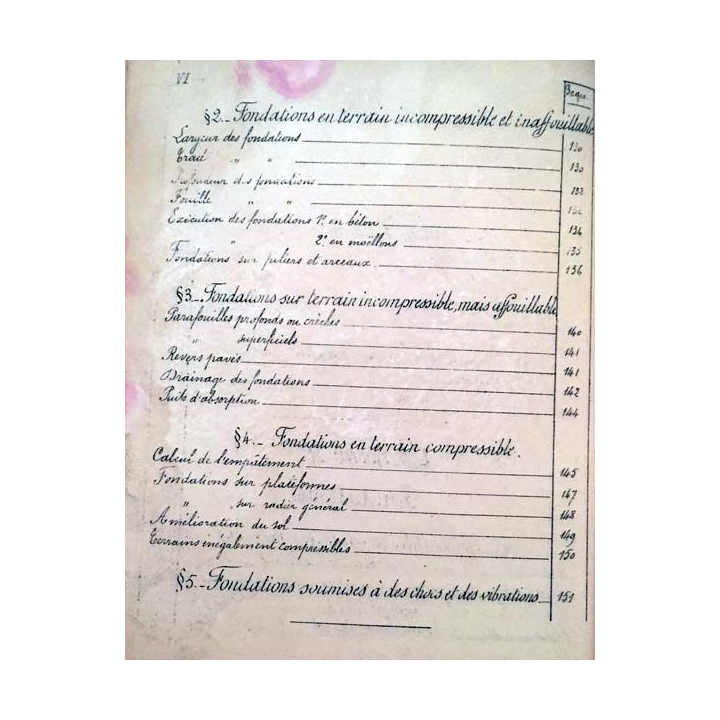 VI
Pages.
§2._ Fondations en terrain incompressible et inaffouillable
Largeur des fondations 130
Tracé " " 130
Profondeur des fondations 132
Fouille " " 132
Exécution des fondations 1º en béton 134
" 2º en moëllons 135
Fondations sur piliers et arceaux 136
§3._ Fondations sur terrain incompressible, mais affouillable
Parafouilles profonds ou crèches 140
" superficiels 141
Revers pavés 141
Drainage des fondations 142
Puits d'absorption 144
§4._ Fondations en terrain compressible.
Calcul de l'empâtement 145
Fondations sur plateformes 147
" sur radier général 148
Amélioration du sol 149
Terrains inégalement compressibles 150
§5._ Fondations soumises à des chocs et des vibrations 151